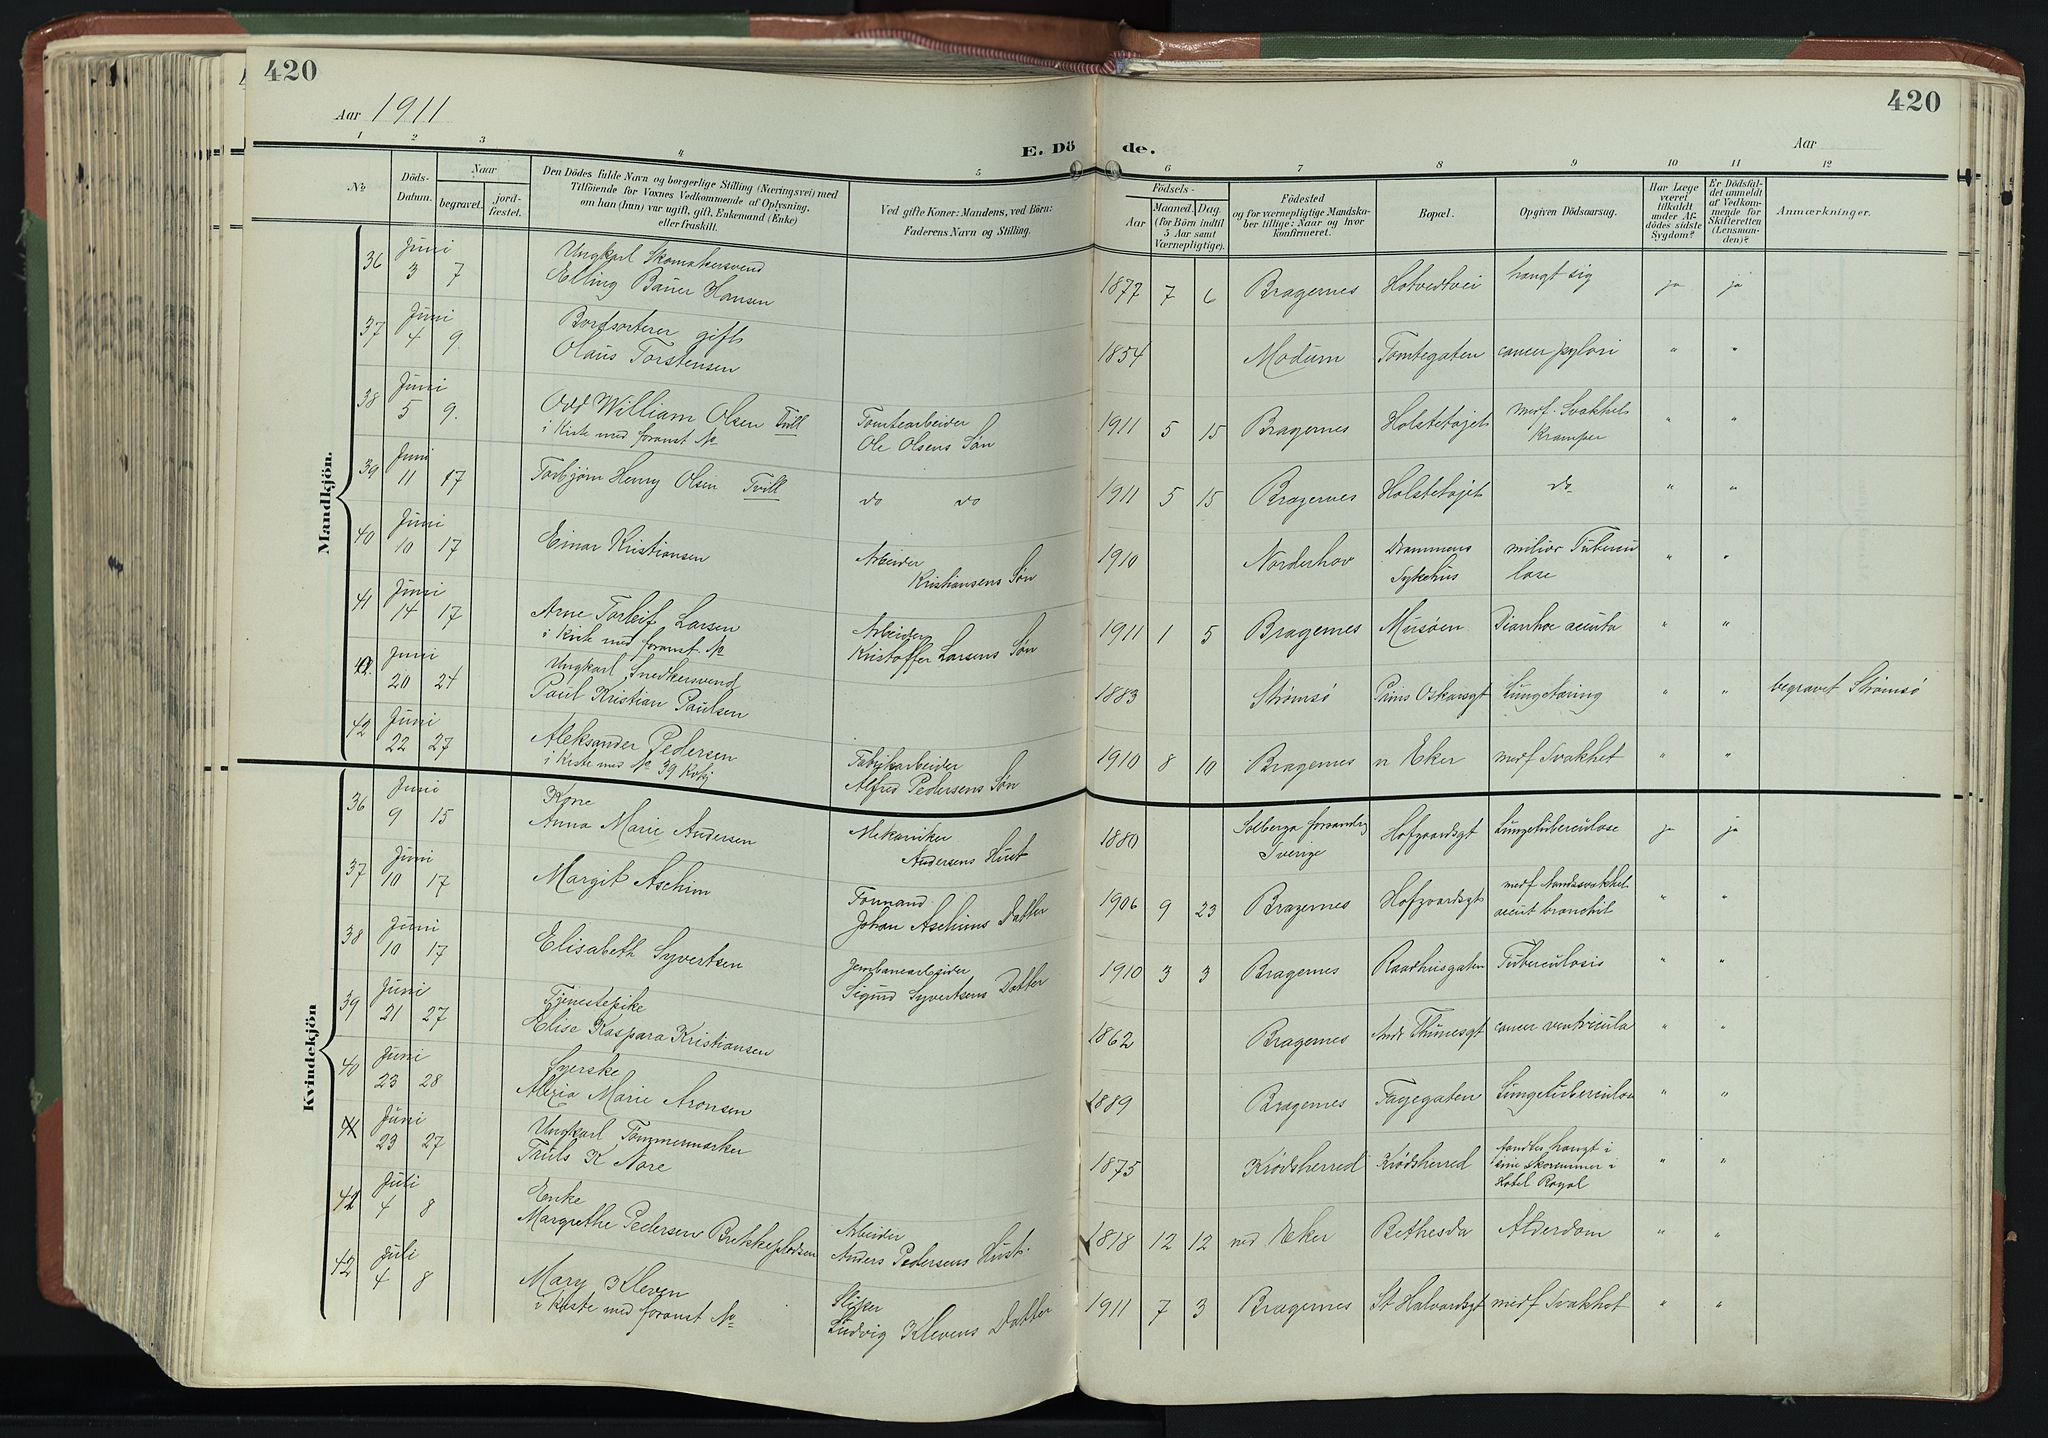 420
420
Aar 1911
Aar
E. Dö
de.
1 2 3 4 5 6 7 8 9 10 11 12
No
Döds-Datum.
Naar
begravet.
jord-fæstet.
Den Dödes fulde Navn og borgerlige Stilling (Næringsvei) med
Tilföiende for Voxnes Vedkommende af Oplysning,
om han (hun) var ugift, gift, Enkemand (Enke)
eller fraskilt.
Ved gifte Koner: Mandens, ved Börn:
Faderens Navn og Stilling.
Födsels-
Aar
Maaned. Dag.
(for Börn indtil
5 Aar samt
Værnepligtige).
Födested
og for værnepligtige Mandska-
ber tillige: Naar og hvor
konfirmeret.
Bopæl.
Opgiven Dödsaarsag.
Har Læge
været
tilkaldt
under Af-
dödes sidste
Sygdom?
Er Dödsfal-
det anmeldt
af Vedkom-
mende for
Skifteretten
(Lensman-
den)?
Anmærkninger.
Mandkjön.
36 Juni 3 7 Ungkarl Skomakersvend
Elling Bauer Hansen 1877 7 6 Bragernes Hotvedtvei hængt sig ja ja
37 Juni 4 9. Bordsorterer gift
Olaus Torstensen 1854 Modum Tomtegaten cancer pylori " "
38 Juni 5 9. Odd William Olsen Tvill
i Kiste med foranst No
Tomtearbeider
Ole Olsens Søn 1911 5 15 Bragernes Holstetøjet medf. Svakhet
Kramper " "
39 Juni 11 17 Torbjørn Henry Olsen Tvill do do 1911 5 15 Bragernes Holstetøjet do " "
40 Juni 10 17 Einar Kristiansen
Arbeider
Kristiansens Søn 1910 Norderhov Drammens
Sykehus miliær Tubercu
lose " "
41 Juni 14 17 Arne Torleif Larsen
i Kiste med foranst. No
Arbeider
Kristoffer Larsens Søn 1911 1 5 Bragernes Musøen Diarrhoe acuta " "
42. Juni 20 24 Ungkarl, Snedkersvend
Paul Kristian Paulsen 1883 Strømsø Prins Oskarsgt Lungetæring " " begravet Strømsø
42 Juni 22 27 Aleksander Pedersen
i Kiste med No 39 Kvkj
Fabrikarbeider
Alfred Pedersens Søn 1910 8 10 Bragernes n Eker medf Svakhet " "
Kvindekjön
36 Juni 9 15 Kone
Anna Marie Andersen
Mekaniker
Andersens Hust 1880 Solberga
Sverige Hofgaardsgt Lungetuberculose ja ja
37 Juni 10 17 Margit Aschim
Formand
Johan Aschims Datter 1906 9 23 Bragernes Hofgaardsgt medf Aandssvakhet
accut bronchit " "
38 Juni 10 17 Elisabeth Syvertsen
Jernbanearbeider
Sigurd Syvertsens Datter 1910 3 3 Bragernes Raadhusgaten Tuberculosis " "
39 Juni 21 27 Tjenestepike
Elise Kaspara Kristiansen 1862 Bragernes And. Thunesgt cancer ventricula " "
40 Juni 23 28 Syerske
Alexia Marie Aronsen 1889 Bragernes Fagegaten Lungetuberculose " "
41 Juni 23 27 Ungkarl Tømmermerker
Truls K Nore 1875 Krødsherred Krødsherred fandtes hængt i
i Skorummer i
Hotel Royal " "
42 Juli 4 8 Enke
Margrethe Pedersen
Arbeider
Anders Pedersens Hust. 1818 12 12 ned Eker Bethesda Alderdom " "
42 Juli 4 8 Mary Kleven
i Kiste med foranst No
Sliper
Ludvig Klevens Datter 1911 7 3 Bragernes St Halvardsgt medf Svakhet " "